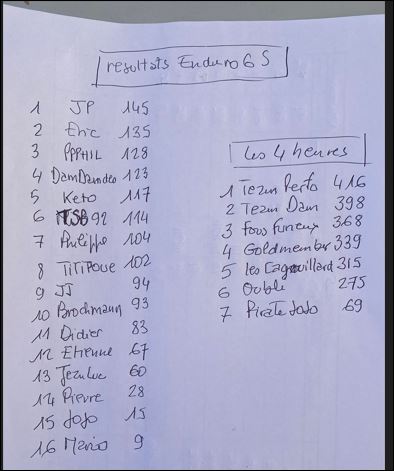 resultats Enduro 6 S
1 JP 145
2 Eric 135
3 PPPHIL 128
4 DamDamdeo 123
5 Keto 117
6 TSB92 114
7 Philippe 104
8 TiTiPoue 102
9 JJ 94
10 Brochmann 93
11 Didier 83
12 Etienne 67
13 Jeanluc 60
14 Pierre 28
15 JoJo 15
16 Mario 9
les 4 heures
1 Team Perto 416
2 Team Dam 398
3 Fous Furieux 368
4 Goldmember 339
5 les Cagouillard 315
6 Oublié 275
7 Pirate JoJo 69